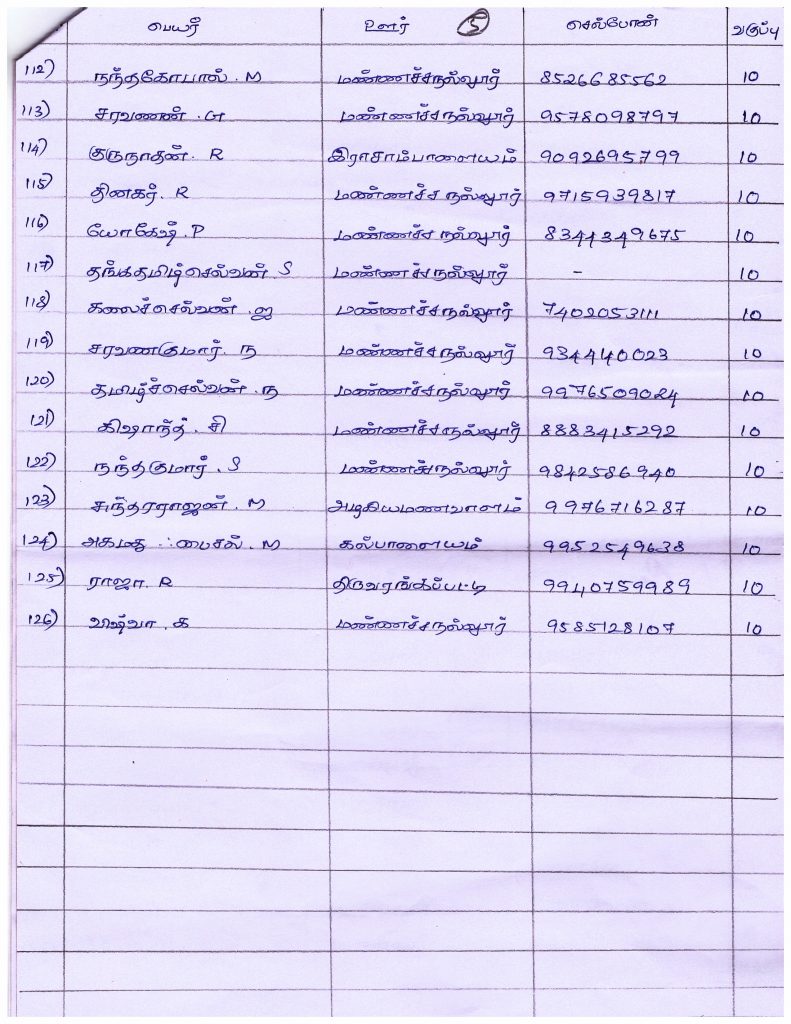 பெயர் ஊர் 5 செல்போன் வகுப்பு
112) நந்தகோபால். M மண்ணச்சநல்லூர் 8526685562 10
113) சரவணன். G மண்ணச்சநல்லூர் 9578098797 10
114) குருநாதன். R இராசாம்பாளையம் 9092695799 10
115) தினகர். R மண்ணச்சநல்லூர் 9715939817 10
116) யோகேஷ். P மண்ணச்சநல்லூர் 8344349675 10
117) தங்கதமிழ்செல்வன். S மண்ணச்சநல்லூர் - 10
118) கலைச்செல்வன். ஜ மண்ணச்சநல்லூர் 7402053111 10
119) சரவணகுமார். ந மண்ணச்சநல்லூர் 934440023 10
120) தமிழ்ச்செல்வன். ந மண்ணச்சநல்லூர் 9976509024 10
121) கிஷாந்த். சி மண்ணச்சநல்லூர் 8883415292 10
122) நந்தகுமார். S மண்ணச்சநல்லூர் 9842586940 10
123) சுந்தரராஜன். M அழகியமணவாளம் 9976716287 10
124) அகமது ஃபைசல். M கல்பாளையம் 9952549638 10
125) ராஜா. R திருவரங்கப்பட்டி 9940759989 10
126) விஷ்வா. க மண்ணச்சநல்லூர் 9585128107 10